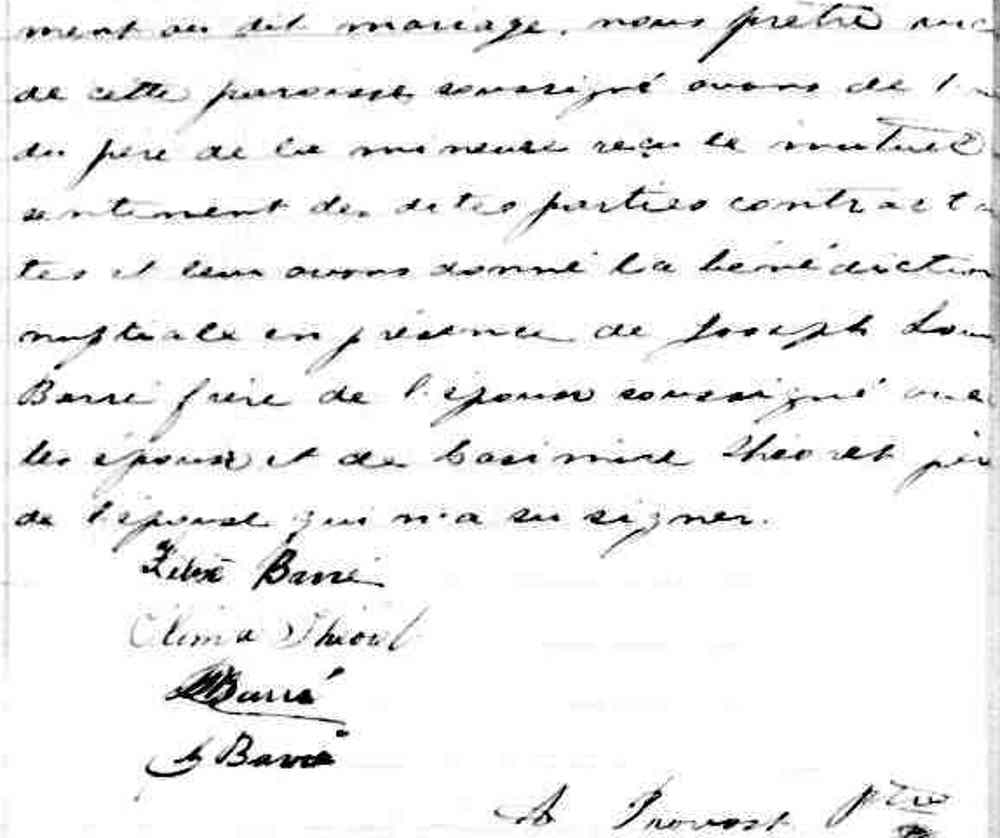 ment au dit mariage, nous prêtre
de cette paroisse soussigné avons de
du père de la mineure reçu le mutuel
sentiment des dites parties contractan
tes et leur avons donné la bénédiction
nuptiale en présence de Joseph
Barré frère de l'époux soussigné avec
les époux et de Casimire Théoret père
de l'épouse qui n'a su signer.
Barré
Olima Théoret
Barré
Barré
A Provost Ptre